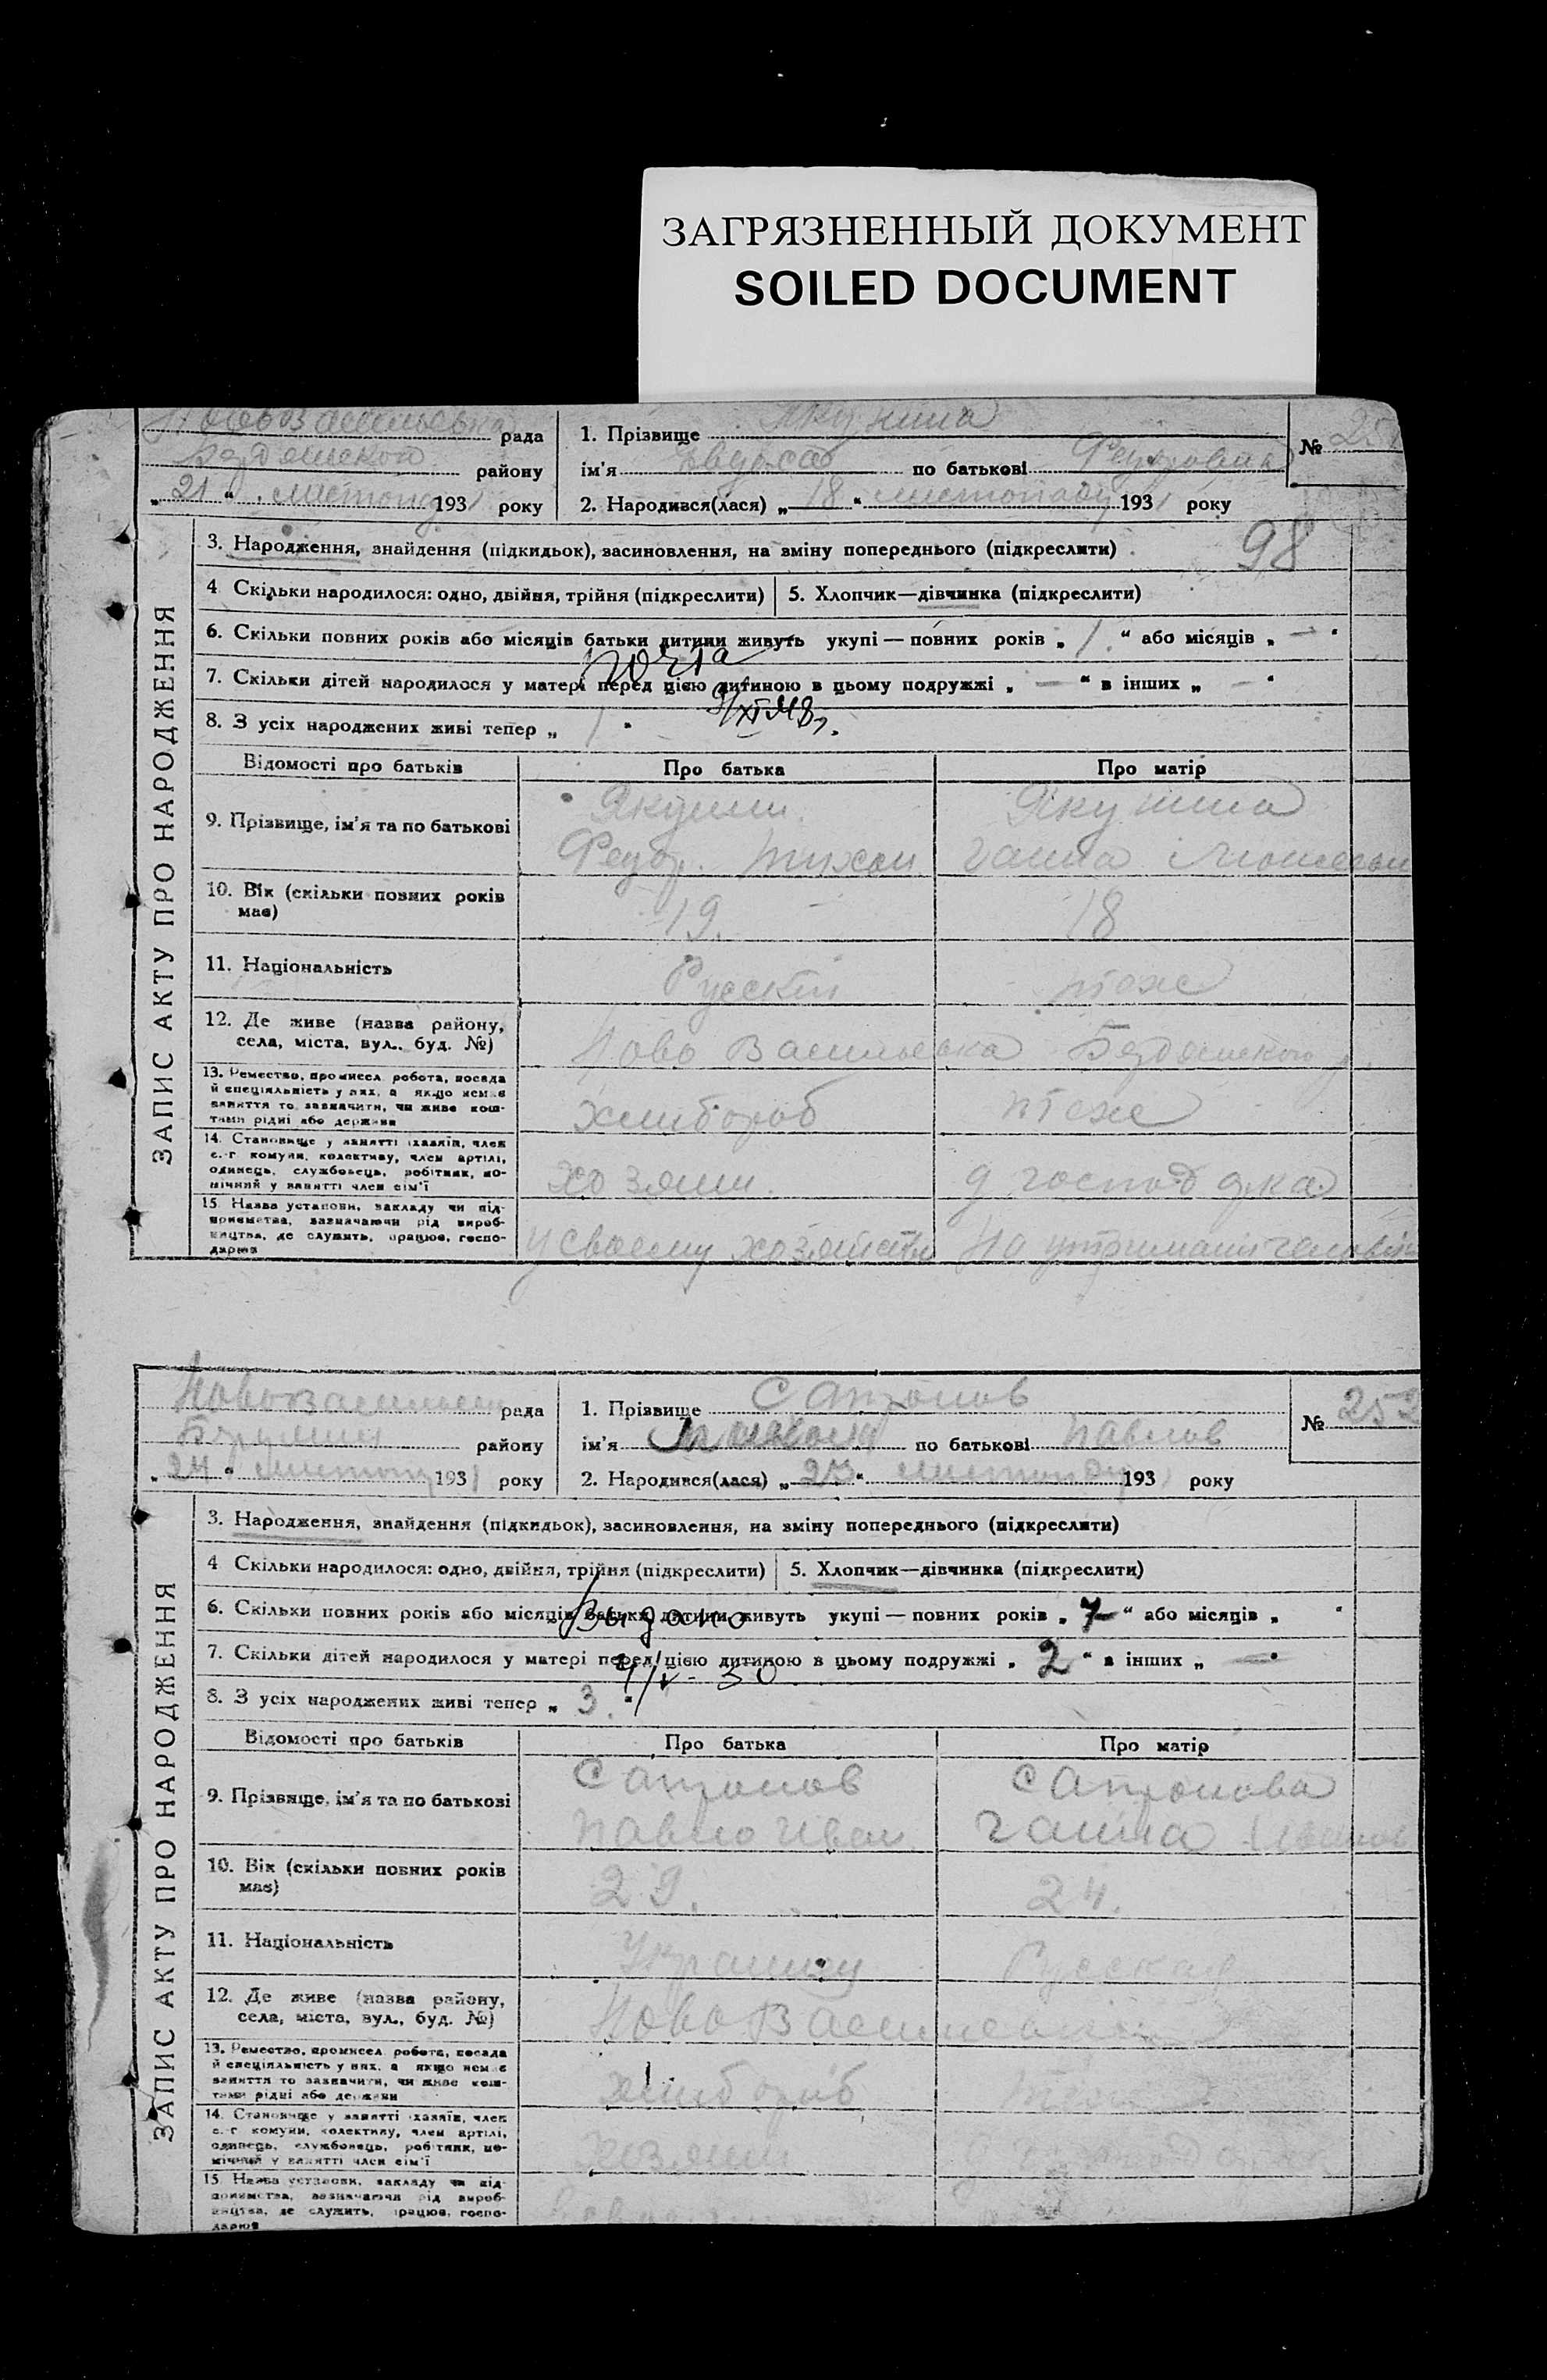 ЗАГРЯЗНЕННЫЙ ДОКУМЕНТ
SOILED DOCUMENT
ЗАПИС АКТУ ПРО НАРОДЖЕННЯ
рада
району
„ 21 “ листопад 1931 року
1. Прізвище Якунина
ім'я по батькові
№ 251
2. Народився(лася) „ 18 “ листопаду 1931 року
98
3. Народження, знайдення (підкидьок), засиновлення, на зміну попереднього (підкреслити)
4 Скільки народилося: одно, двійня, трійня (підкреслити)
5. Хлопчик—дівчинка (підкреслити)
6. Скільки повних років або місяців батьки дитини живуть укупі — повних років „ 1 “ або місяців „ — “
7. Скільки дітей народилося у матері перед цією дитиною в цьому подружжі „ — “ в інших „ — “
8. З усіх народжених живі тепер „ 1 “
Відомості про батьків
Про батька
Про матір
9. Прізвище, ім'я та по батькові
Якунин
Федор Тихон
Якунина
Ганна
10. Вік (скільки повних років має)
19.
18
11. Національність
Русскій
тоже
12. Де живе (назва району, села, міста, вул., буд. №)
Ново Васильевка
13. Ремество, промисел робота, посада й спеціяльність у них, а якщо немає заняття то зазначити, чи живе коштами рідні або держави
хлибороб
тоже
14. Становище у занятті (хазяїн, член с.-г комуни, колективу, член артілі, одинець, службовець, робітник, помічний у занятті член сім'ї
хозяин.
д господарка
15. Назва установи, закладу чи підприємства, зазначаючи рід виробництва, де служить, працює, господарює
у своему хозяйстви
На утримані человіка
ЗАПИС АКТУ ПРО НАРОДЖЕННЯ
рада
району
„ 24 “ листопад 1931 року
1. Прізвище Сапронов
ім'я Микола по батькові Павлов
№ 252
2. Народився(лася) „ 23 “ листопаду 1931 року
3. Народження, знайдення (підкидьок), засиновлення, на зміну попереднього (підкреслити)
4 Скільки народилося: одно, двійня, трійня (підкреслити)
5. Хлопчик—дівчинка (підкреслити)
6. Скільки повних років або місяців батьки дитини живуть укупі — повних років „ 7 “ або місяців „ “
Выдано
7. Скільки дітей народилося у матері перед цією дитиною в цьому подружжі „ 2 “ в інших „ — “
8. З усіх народжених живі тепер „ 3. “
Відомості про батьків
Про батька
Про матір
9. Прізвище, ім'я та по батькові
Сапронов
Павло Иван
Сапронова
Ганна Иванов
10. Вік (скільки повних років має)
29.
24.
11. Національність
Украинец
Русская
12. Де живе (назва району, села, міста, вул., буд. №)
Ново Васильевка
13. Ремество, промисел робота, посада й спеціяльність у них, а якщо немає заняття то зазначити, чи живе коштами рідні або держави
хлибороб
14. Становище у занятті (хазяїн, член с.-г комуни, колективу, член артілі, одинець, службовець, робітник, помічний у занятті член сім'ї
хозяин
15. Назва установи, закладу чи підприємства, зазначаючи рід виробництва, де служить, працює, господарює